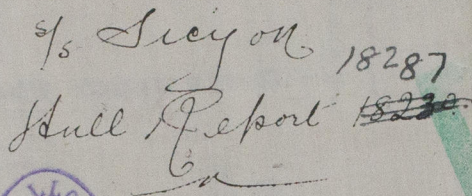 s/s Sicyon
18287
Hull Report 18230